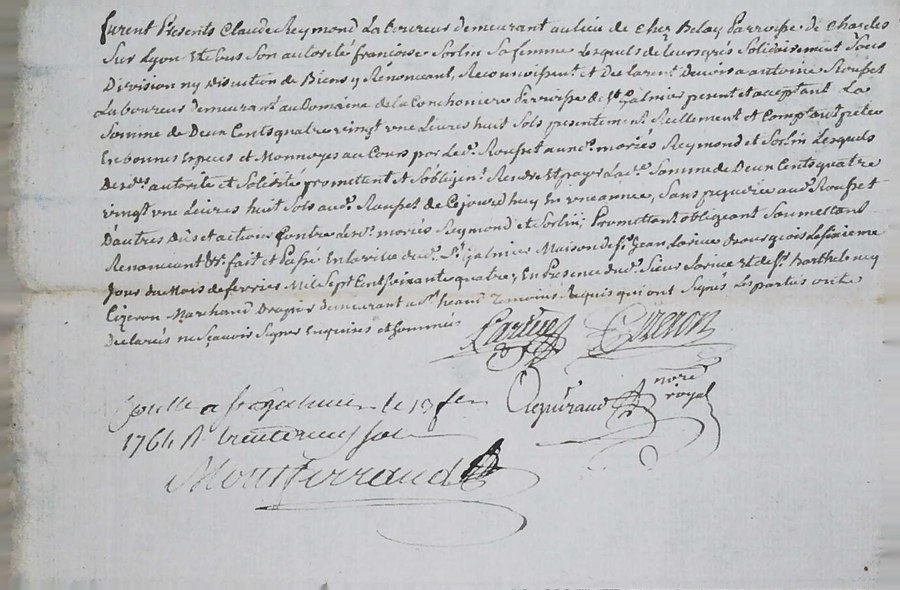 furent Presents Claude Reymond Laboureur demeurant au lieu de chez Belay Parroisse de Charles
Sur Lyon Et de lui Son autorité françoise Sorlin Sa femme Lesquels de leurs grés Solidairement Sous
Division ny discution de Biens y Rénonceant, Reconnoissent et declarent devoir a antoine Rousset
Laboureur demeurant au Domaine de la Conchoniere Parroisse de St. Galmier present et acceptant La
Somme de Deux Cents quatre vingt une Livres huit Sols presentement Réellement et Comptant
En bonnes Especes et Monnoyes au Cours par Led. Rousset auxd. mariés Reymond et Sorlin Lesquels
autorité et Solidité promettent et S'obligent Rendre et payer Lad. Somme de Deux Cents quatre
vingt une Livres huit Sols aud. Rousset de Cejourdhuy En une année, Sans prejudice aud. Rousset
D'autres Dûs et actions Contre mariés Reymond et Sorlin; Promettant obligeant Soumettant
Renonceant &c fait et Passé En la ville dud. St. Galmier Maison de Sr. Jean Larive Bourgeois le
Jour du Mois de fevrier Mil Sept Cent Soixante quatre, En Presence dud. Sieur Larive Et de Sr. Barthelemy
Cizeron Marchand Drapier demeurant a St. temoins Requis qui ont Signés Les parties ont
Declarés ne Sçavoir Signer Enquises et Sommés
Larive Cizeron
a le 13 fev
notre royal
1764 R treize sols
Montferrand